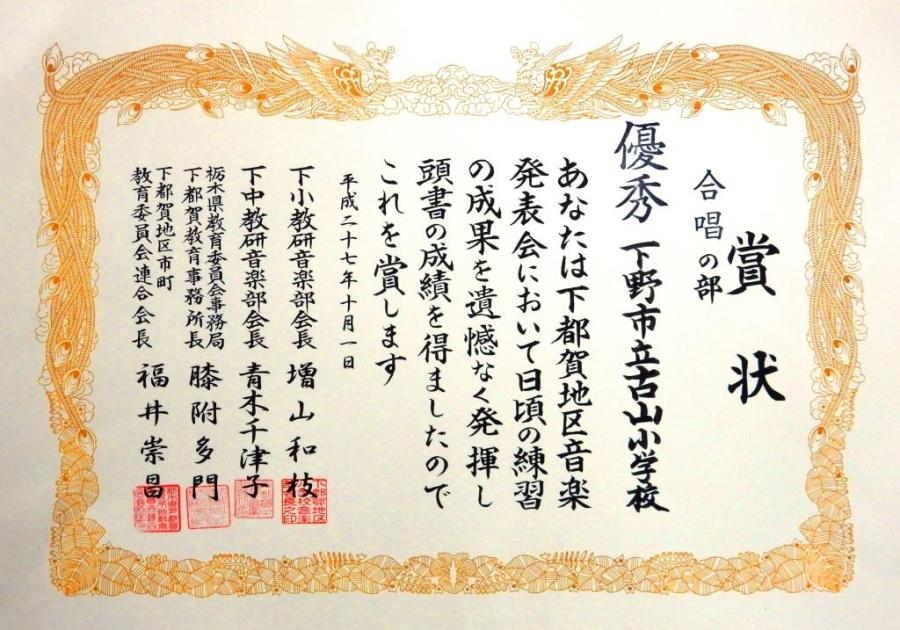 賞状
合唱の部
優秀 下野市立古山小学校
あなたは下都賀地区音楽
発表会において日頃の練習
の成果を遺憾なく発揮し
頭書の成績を得ましたので
これを賞します
平成二十七年十月一日
下小教研音楽部会長 増山和枝
下中教研音楽部会長 青木千津子
栃木県教育委員会事務局
下都賀教育事務所長 膝附多門
下都賀地区市町
教育委員会連合会長 福井崇昌